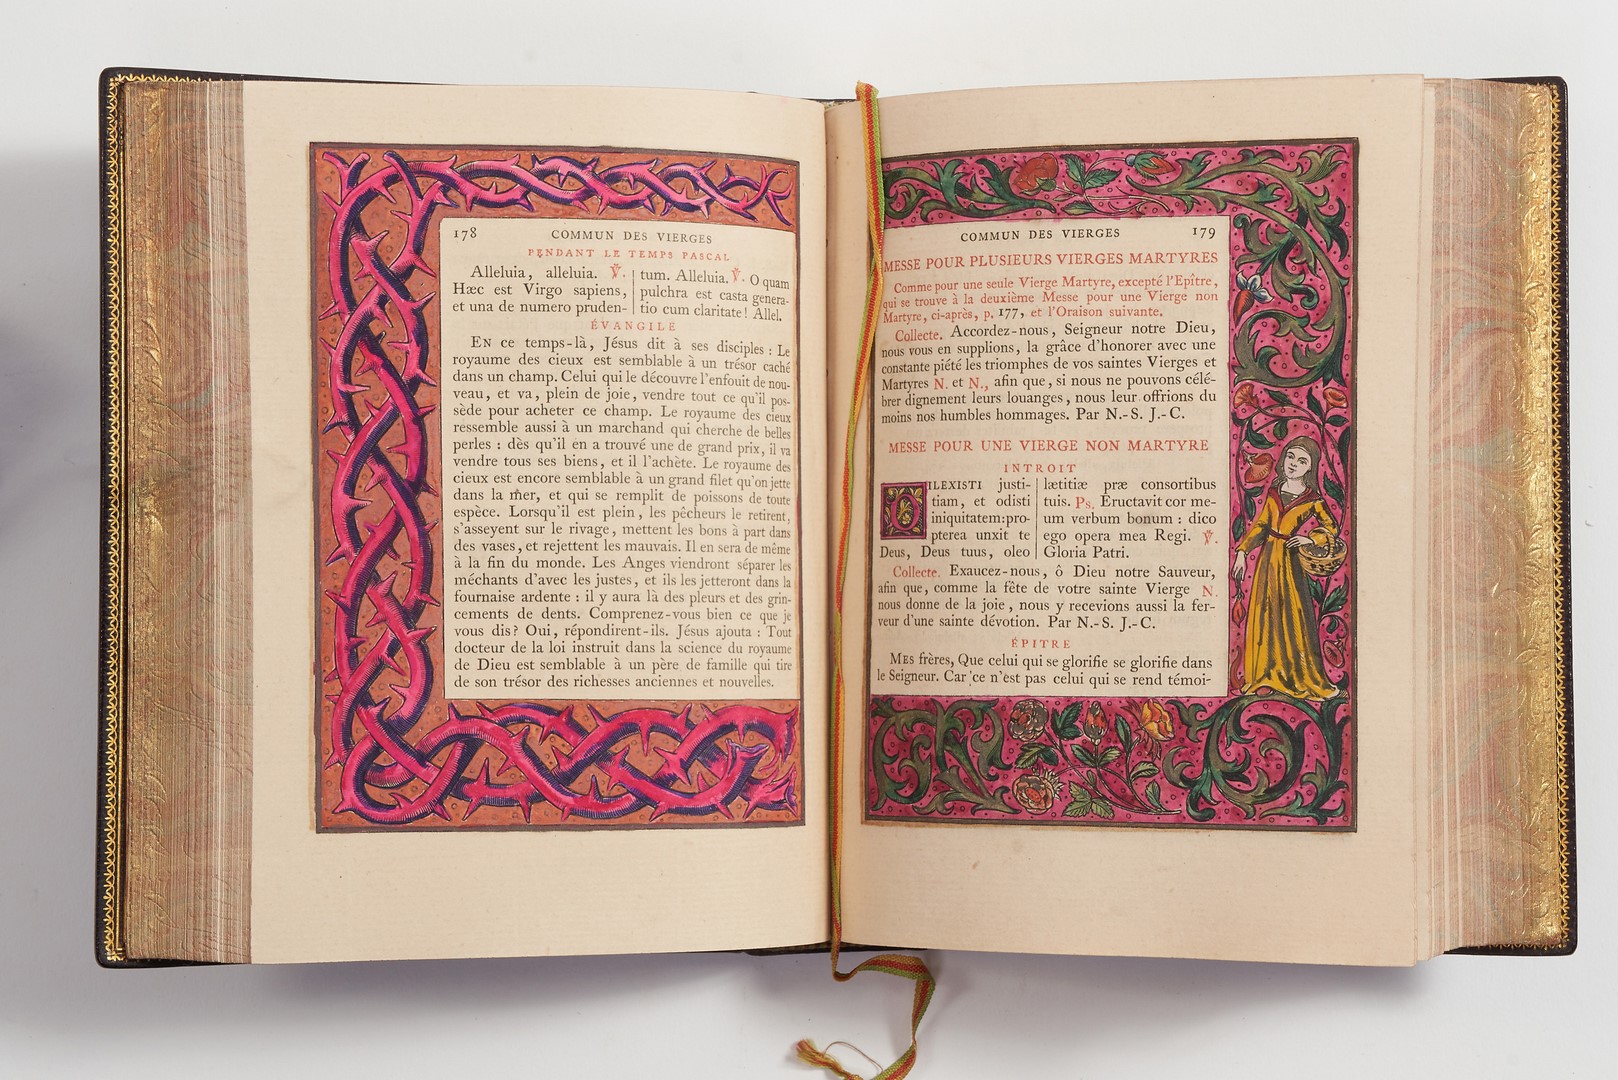 178 COMMUN DES VIERGES
PENDANT LE TEMPS PASCAL
Alleluia, alleluia. ℣.
Hæc est Virgo sapiens,
et una de numero pruden-
tum. Alleluia. ℣. O quam
pulchra est casta genera-
tio cum claritate! Allel.
ÉVANGILE
EN ce temps-là, Jésus dit à ses disciples : Le
royaume des cieux est semblable à un trésor caché
dans un champ. Celui qui le découvre l'enfouit de nou-
veau, et va, plein de joie, vendre tout ce qu'il pos-
sède pour acheter ce champ. Le royaume des cieux
ressemble aussi à un marchand qui cherche de belles
perles : dès qu'il en a trouvé une de grand prix, il va
vendre tous ses biens, et il l'achète. Le royaume des
cieux est encore semblable à un grand filet qu'on jette
dans la mer, et qui se remplit de poissons de toute
espèce. Lorsqu'il est plein, les pêcheurs le retirent,
s'asseyent sur le rivage, mettent les bons à part dans
des vases, et rejettent les mauvais. Il en sera de même
à la fin du monde. Les Anges viendront séparer les
méchants d'avec les justes, et ils les jetteront dans la
fournaise ardente : il y aura là des pleurs et des grin-
cements de dents. Comprenez-vous bien ce que je
vous dis? Oui, répondirent-ils. Jésus ajouta : Tout
docteur de la loi instruit dans la science du royaume
de Dieu est semblable à un père de famille qui tire
de son trésor des richesses anciennes et nouvelles.
COMMUN DES VIERGES 179
MESSE POUR PLUSIEURS VIERGES MARTYRES
Comme pour une seule Vierge Martyre, excepté l'Epître,
qui se trouve à la deuxième Messe pour une Vierge non
Martyre, ci-après, p. 177, et l'Oraison suivante.
Collecte. Accordez-nous, Seigneur notre Dieu,
nous vous en supplions, la grâce d'honorer avec une
constante piété les triomphes de vos saintes Vierges et
Martyres N. et N., afin que, si nous ne pouvons célé-
brer dignement leurs louanges, nous leur offrions du
moins nos humbles hommages. Par N.-S. J.-C.
MESSE POUR UNE VIERGE NON MARTYRE
INTROIT
DILEXISTI justi-
tiam, et odisti
iniquitatem: pro-
pterea unxit te
Deus, Deus tuus, oleo
lætitiæ præ consortibus
tuis. Ps. Eructavit cor me-
um verbum bonum : dico
ego opera mea Regi. ℣.
Gloria Patri.
Collecte. Exaucez-nous, ô Dieu notre Sauveur,
afin que, comme la fête de votre sainte Vierge N.
nous donne de la joie, nous y recevions aussi la fer-
veur d'une sainte dévotion. Par N.-S. J.-C.
ÉPITRE
MES frères, Que celui qui se glorifie se glorifie dans
le Seigneur. Car ce n'est pas celui qui se rend témoi-